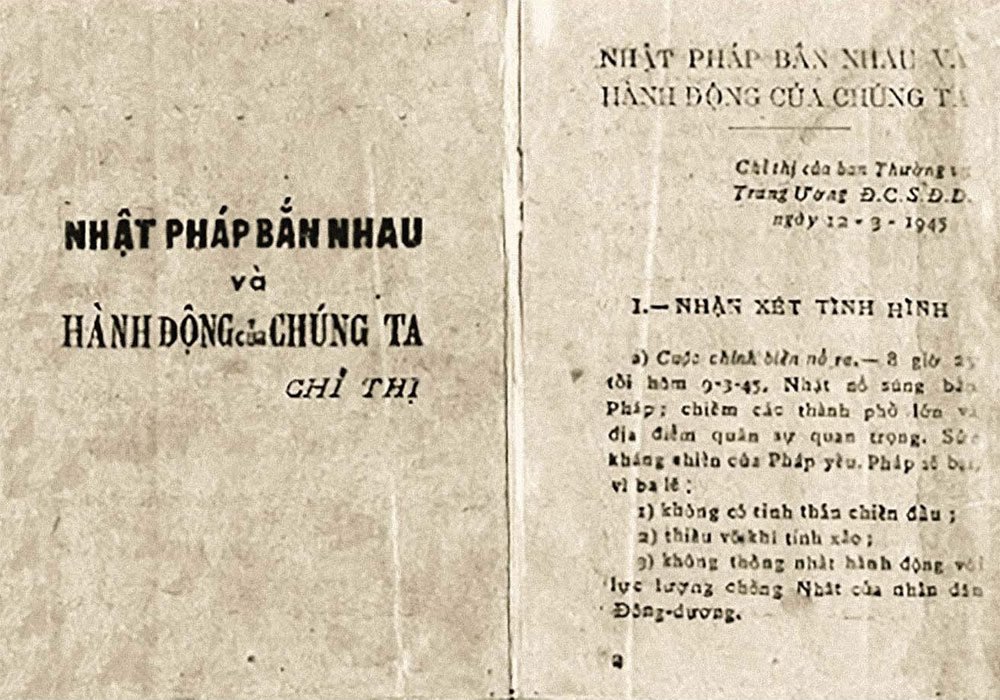 NHẬT PHÁP BẮN NHAU
và
HÀNH ĐỘNG của CHÚNG TA
CHỈ THỊ
NHẬT PHÁP BẮN NHAU VÀ
HÀNH ĐỘNG CỦA CHÚNG TA
Chỉ thị của ban Thường vụ
Trung Ương Đ.C.S.Đ.D.
ngày 12 - 3 - 1945
I.— NHẬN XÉT TÌNH HÌNH
a) Cuộc chính biến nổ ra.— 8 giờ 25
tối hôm 9-3-45, Nhật nổ súng bắn
Pháp; chiếm các thành phố lớn và
địa điểm quân sự quan trọng. Sức
kháng chiến của Pháp yếu. Pháp sẽ bại,
vì ba lẽ :
1) không có tinh thần chiến đấu ;
2) thiếu võ khí tinh xảo ;
3) không thống nhất hành động với
lực lượng chống Nhật của nhân dân
Đông-dương.
2